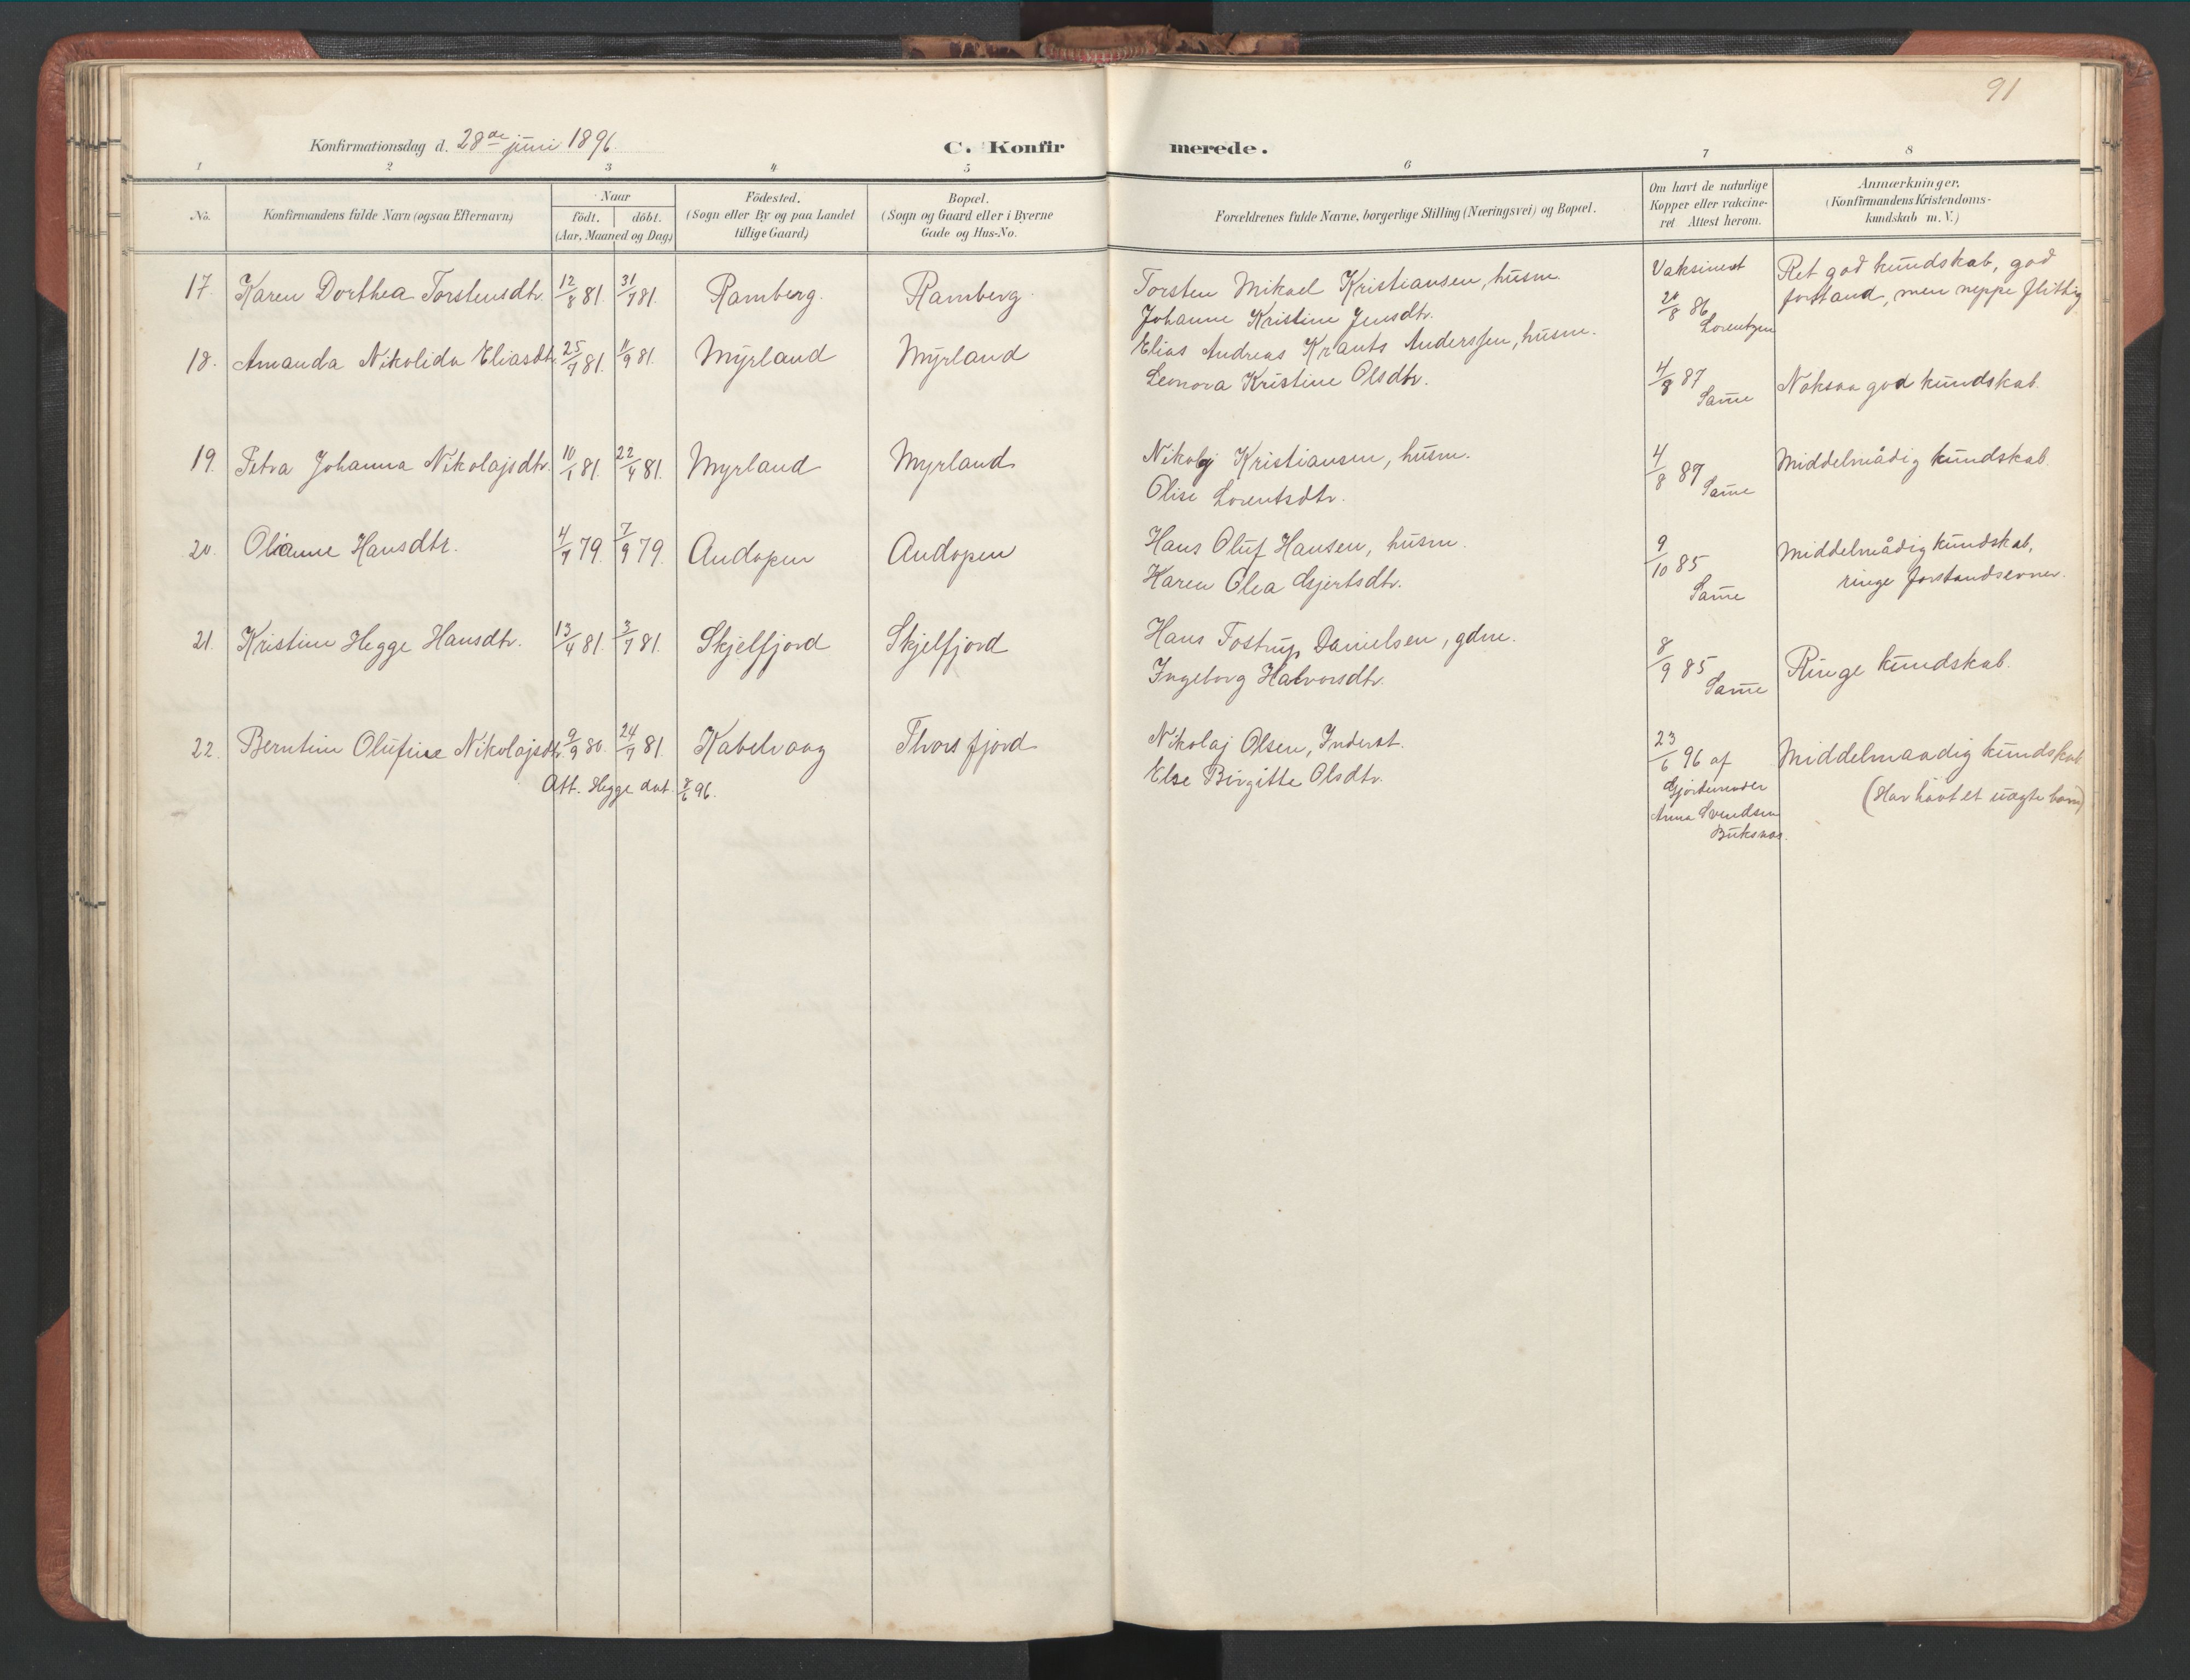 91
Konfirmationsdag d. 28de juni 1896.
C. Konfirmerede.
1 2 3 4 5 6 7 8
No. Konfirmandens fulde Navn (ogsaa Efternavn) Naar födt. döbt. (Aar, Maaned og Dag) Födested. (Sogn eller By og paa Landet tillige Gaard) Bopæl. (Sogn og Gaard eller i Byerne Gade og Hus-No. Forældrenes fulde Navne, borgerlige Stilling (Næringsvei) og Bopæl. Om havt de naturlige Kopper eller vakcineret Attest herom. Anmærkninger. (Konfirmandens Kristendomskundskab m. V.)
17. Karen Dorthea Torstensdtr. 12/8 81. 31/7 81. Ramberg. Ramberg. Torsten Mikael Kristiansen, husm. Vaksinert Ret god kundskab, god
Johanne Kristine Jensdtr. 20/8 86 Lorentzen forstand, men neppe flittig
18. Amanda Nikolida Eliasdtr. 25/7 81. 11/9 81. Myrland Myrland Elias Andreas Krants Anderssen, husm.
Leonora Kristine Olsdtr. 4/8 87 Samme Noksaa god kundskab
19. Petra Johanna Nikolajsdtr. 10/1 81. 22/4 81. Myrland Myrland Nikolaj Kristiansen, husm. 4/8 87 Samme Middelmådig kundskab
Olise Lorentsdtr.
20. Olianne Hansdtr. 4/7 79. 7/9 79. Andopen Andopen Hans Oluf Hansen, husm. 9/10 85 Middelmådig kundskab,
Karen Olea Gjertsdtr. Samme ringe forstandsevner.
21. Kristine Hegge Hansdtr. 13/4 81. 3/7 81. Skjelfjord Skjelfjord Hans Tostrup Danielsen, gdm.
Ingeborg Halvorsdtr. 8/9 85 Samme Ringe kundskab.
22. Berntine Olufine Nikolajsdtr. 9/9 80. 24/7 81. Kabelvaag Thorsfjord Nikolaj Olsen, Inderst. 23/6 96 af Middelmaadig kundskab
Att. Hegge dat. 8/6 96. Else Birgitte Olsdtr. Gjordemoder (Har havt et uægte barn)
Anna Svendsen
Buksnæs.